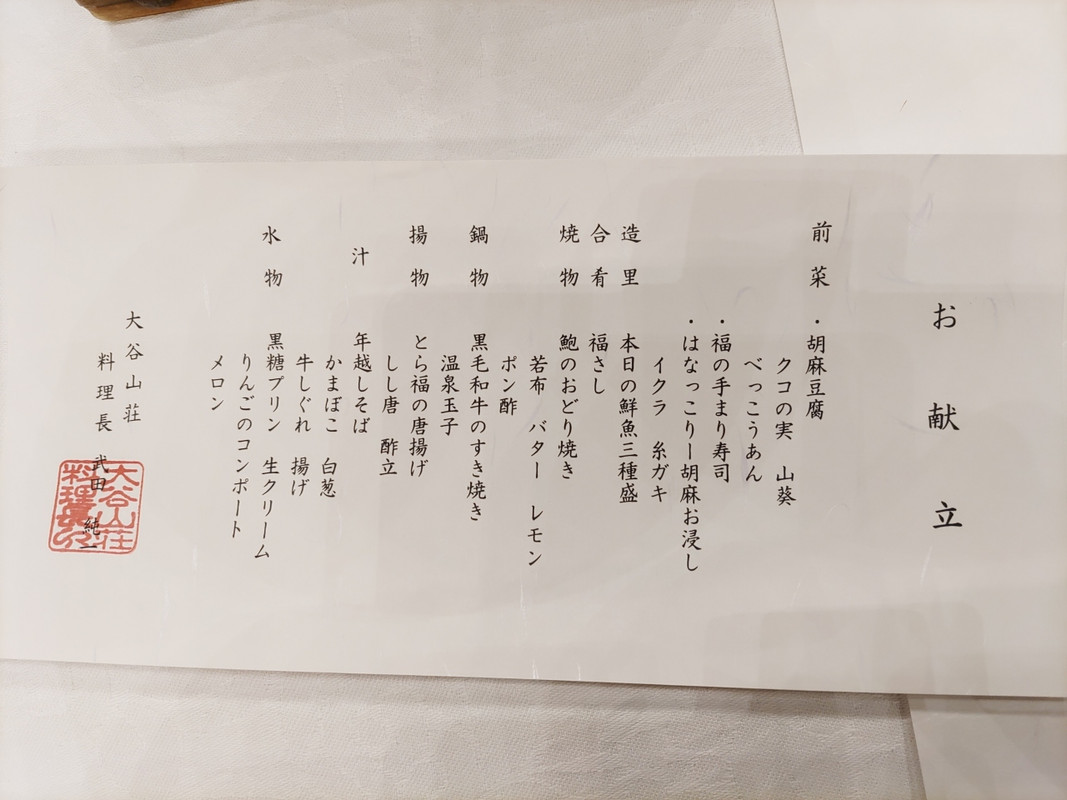 お献立
前菜 ・胡麻豆腐
クコの実 山葵
べっこうあん
・福の手まり寿司
・はなっこりー胡麻お浸し
イクラ 糸ガキ
造里 本日の鮮魚三種盛
合肴 福さし
焼物 鮑のおどり焼き
若布 バター レモン
ポン酢
鍋物 黒毛和牛のすき焼き
温泉玉子
揚物 とら福の唐揚げ
しし唐 酢立
汁 年越しそば
かまぼこ 白葱
牛しぐれ 揚げ
水物 黒糖プリン 生クリーム
りんごのコンポート
メロン
大谷山荘
料理長 武田 純一
大谷山荘
料理長